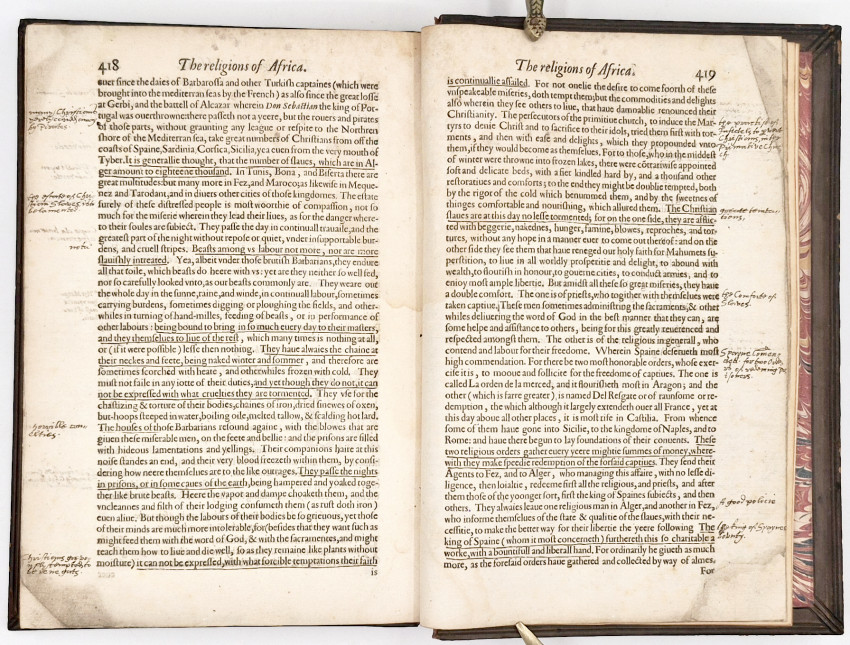 418 The religions of Africa.
euer since the daies of Barbarossa and other Turkish captaines (which were
brought into the mediterran seas by the French) as also since the great losse
at Gerbi, and the battell of Alcazar wherein Don Sebastian the king of Por-
tugal was ouerthrowne: there passeth not a yeere, but the rouers and pirates
of those parts, without graunting any league or respite to the Northren
shore of the Mediterran sea, take great numbers of Christians from off the
coasts of Spaine, Sardinia, Corsica, Sicilia, yea euen from the very mouth of
Tyber. It is generallie thought, that the number of slaues, which are in Al-
ger amount to eighteene thousand. In Tunis, Bona, and Biserta there are
great multitudes: but many more in Fez, and Maroco; as likewise in Meque-
nez and Tarodant, and in diuers other cities of those kingdomes. The estate
surely of these distressed people is most woorthie of compassion, not so
much for the miserie wherein they lead their liues, as for the danger where-
to their soules are subiect. They passe the day in continuall trauaile, and the
greatest part of the night without repose or quiet, vnder insupportable bur-
dens, and cruell stripes. Beasts among vs labour not more, nor are more
slauishly intreated. Yea, albeit vnder those brutish Barbarians, they endure
all that toile, which beasts do heere with vs: yet are they neither so well fed,
nor so carefully looked vnto, as our beasts commonly are. They weare out
the whole day in the sunne, raine, and winde, in continuall labour, sometimes
carrying burdens, sometimes digging or ploughing the fields, and other-
whiles in turning of hand-milles, feeding of beasts, or in performance of
other labours: being bound to bring in so much euery day to their masters,
and they themselues to liue of the rest, which many times is nothing at all,
or (if it were possible) lesse then nothing. They haue alwaies the chaine at
their neckes and feete, being naked winter and sommer, and therefore are
sometimes scorched with heate, and otherwhiles frozen with cold. They
must not faile in any iotte of their duties, and yet though they do not, it can
not be expressed with what cruelties they are tormented. They vse for the
chastizing & torture of their bodies, chaines of iron, dried sinewes of oxen,
but-hoops steeped in water, boiling oile, melted tallow, & scalding hot lard.
The houses of those Barbarians resound againe, with the blowes that are
giuen these miserable men, on the feete and bellie: and the prisons are filled
with hideous lamentations and yellings. Their companions haire at this
noise standes an end, and their very blood freezeth within them, by consi-
dering how neere themselues are to the like outrages. They passe the nights
in prisons, or in some caues of the earth, being hampered and yoaked toge-
ther like brute beasts. Heere the vapor and dampe choaketh them, and the
vncleannes and filth of their lodging consumeth them (as rust doth iron)
euen aliue. But though the labours of their bodies be so grieuous, yet those
of their minds are much more intolerable, for (besides that they want such as
might feed them with the word of God, & with the sacraments, and might
teach them how to liue and die well, so as they remaine like plants without
moisture) it can not be expressed, with what forcible temptations their faith
is
The religions of Africa. 419
is continuallie assailed. For not onelie the desire to come foorth of these
vnspeakeable miseries, doth tempt them; but the commodities and delights
also wherein they see others to liue, that haue damnablie renounced their
Christianity. The persecutors of the primitiue church, to induce the Mar-
tyrs to denie Christ and to sacrifice to their idols, tried them first with tor-
ments, and then with ease and delights, which they propounded vnto
them, if they would become as themselues. For to those, who in the middest
of winter were throwne into frozen lakes, there were cōtrariwise appointed
soft and delicate beds, with a fier kindled hard by, and a thousand other
restoratiues and comforts; to the end they might be doublie tempted, both
by the rigor of the cold which benummed them, and by the sweetnes of
thinges comfortable and nourishing, which allured them. The Christian
slaues are at this day no lesse tormented; for on the one side, they are afflic-
ted with beggerie, nakednes, hunger, famine, blowes, reproches, and tor-
tures, without any hope in a manner euer to come out thereof: and on the
other side they see them that haue reneged our holy faith for Mahumets su-
perstition, to liue in all worldly prosperitie and delight, to abound with
wealth, to flourish in honour, to gouerne cities, to conduct armies, and to
enioy most ample libertie. But amidst all these so great miseries, they haue
a double comfort. The one is of priests, who together with themselues were
taken captiue. These men sometimes administring the sacraments, & other
whiles deliuering the word of God in the best manner that they can, are
some helpe and assistance to others, being for this greatly reuerenced and
respected amongst them. The other is of the religious in generall, who
contend and labour for their freedome. Wherein Spaine deserueth most
high commendation. For there be two most honorable orders, whose exer-
cise it is, to mooue and sollicite for the freedome of captiues. The one is
called La orden de la merced, and it flourisheth most in Aragon; and the
other (which is farre greater), is named Del Resgate or of raunsome or re-
demption, the which although it largely extendeth ouer all France, yet at
this day aboue all other places, it is most rife in Castilia. From whence
some of them haue gone into Sicilie, to the kingdome of Naples, and to
Rome: and haue there begun to lay foundations of their conuents. These
two religious orders gather euery yeere mightie summes of money, where-
with they make speedie redemption of the forsaid captiues. They send their
Agents to Fez, and to Alger, who managing this affaire, with no lesse di-
ligence, then loialtie, redeeme first all the religious, and priests, and after
them those of the yonger sort, first the king of Spaines subiects, and then
others. They alwaies leaue one religious man in Alger, and another in Fez,
who informe themselues of the state & qualitie of the slaues, with their ne-
cessitie, to make the better way for their libertie the yeere following. The
king of Spaine (whom it most concerneth) furthereth this so charitable a
worke, with a bountifull and liberall hand. For ordinarily he giueth as much
more, as the foresaid orders haue gathered and collected by way of almes.
For